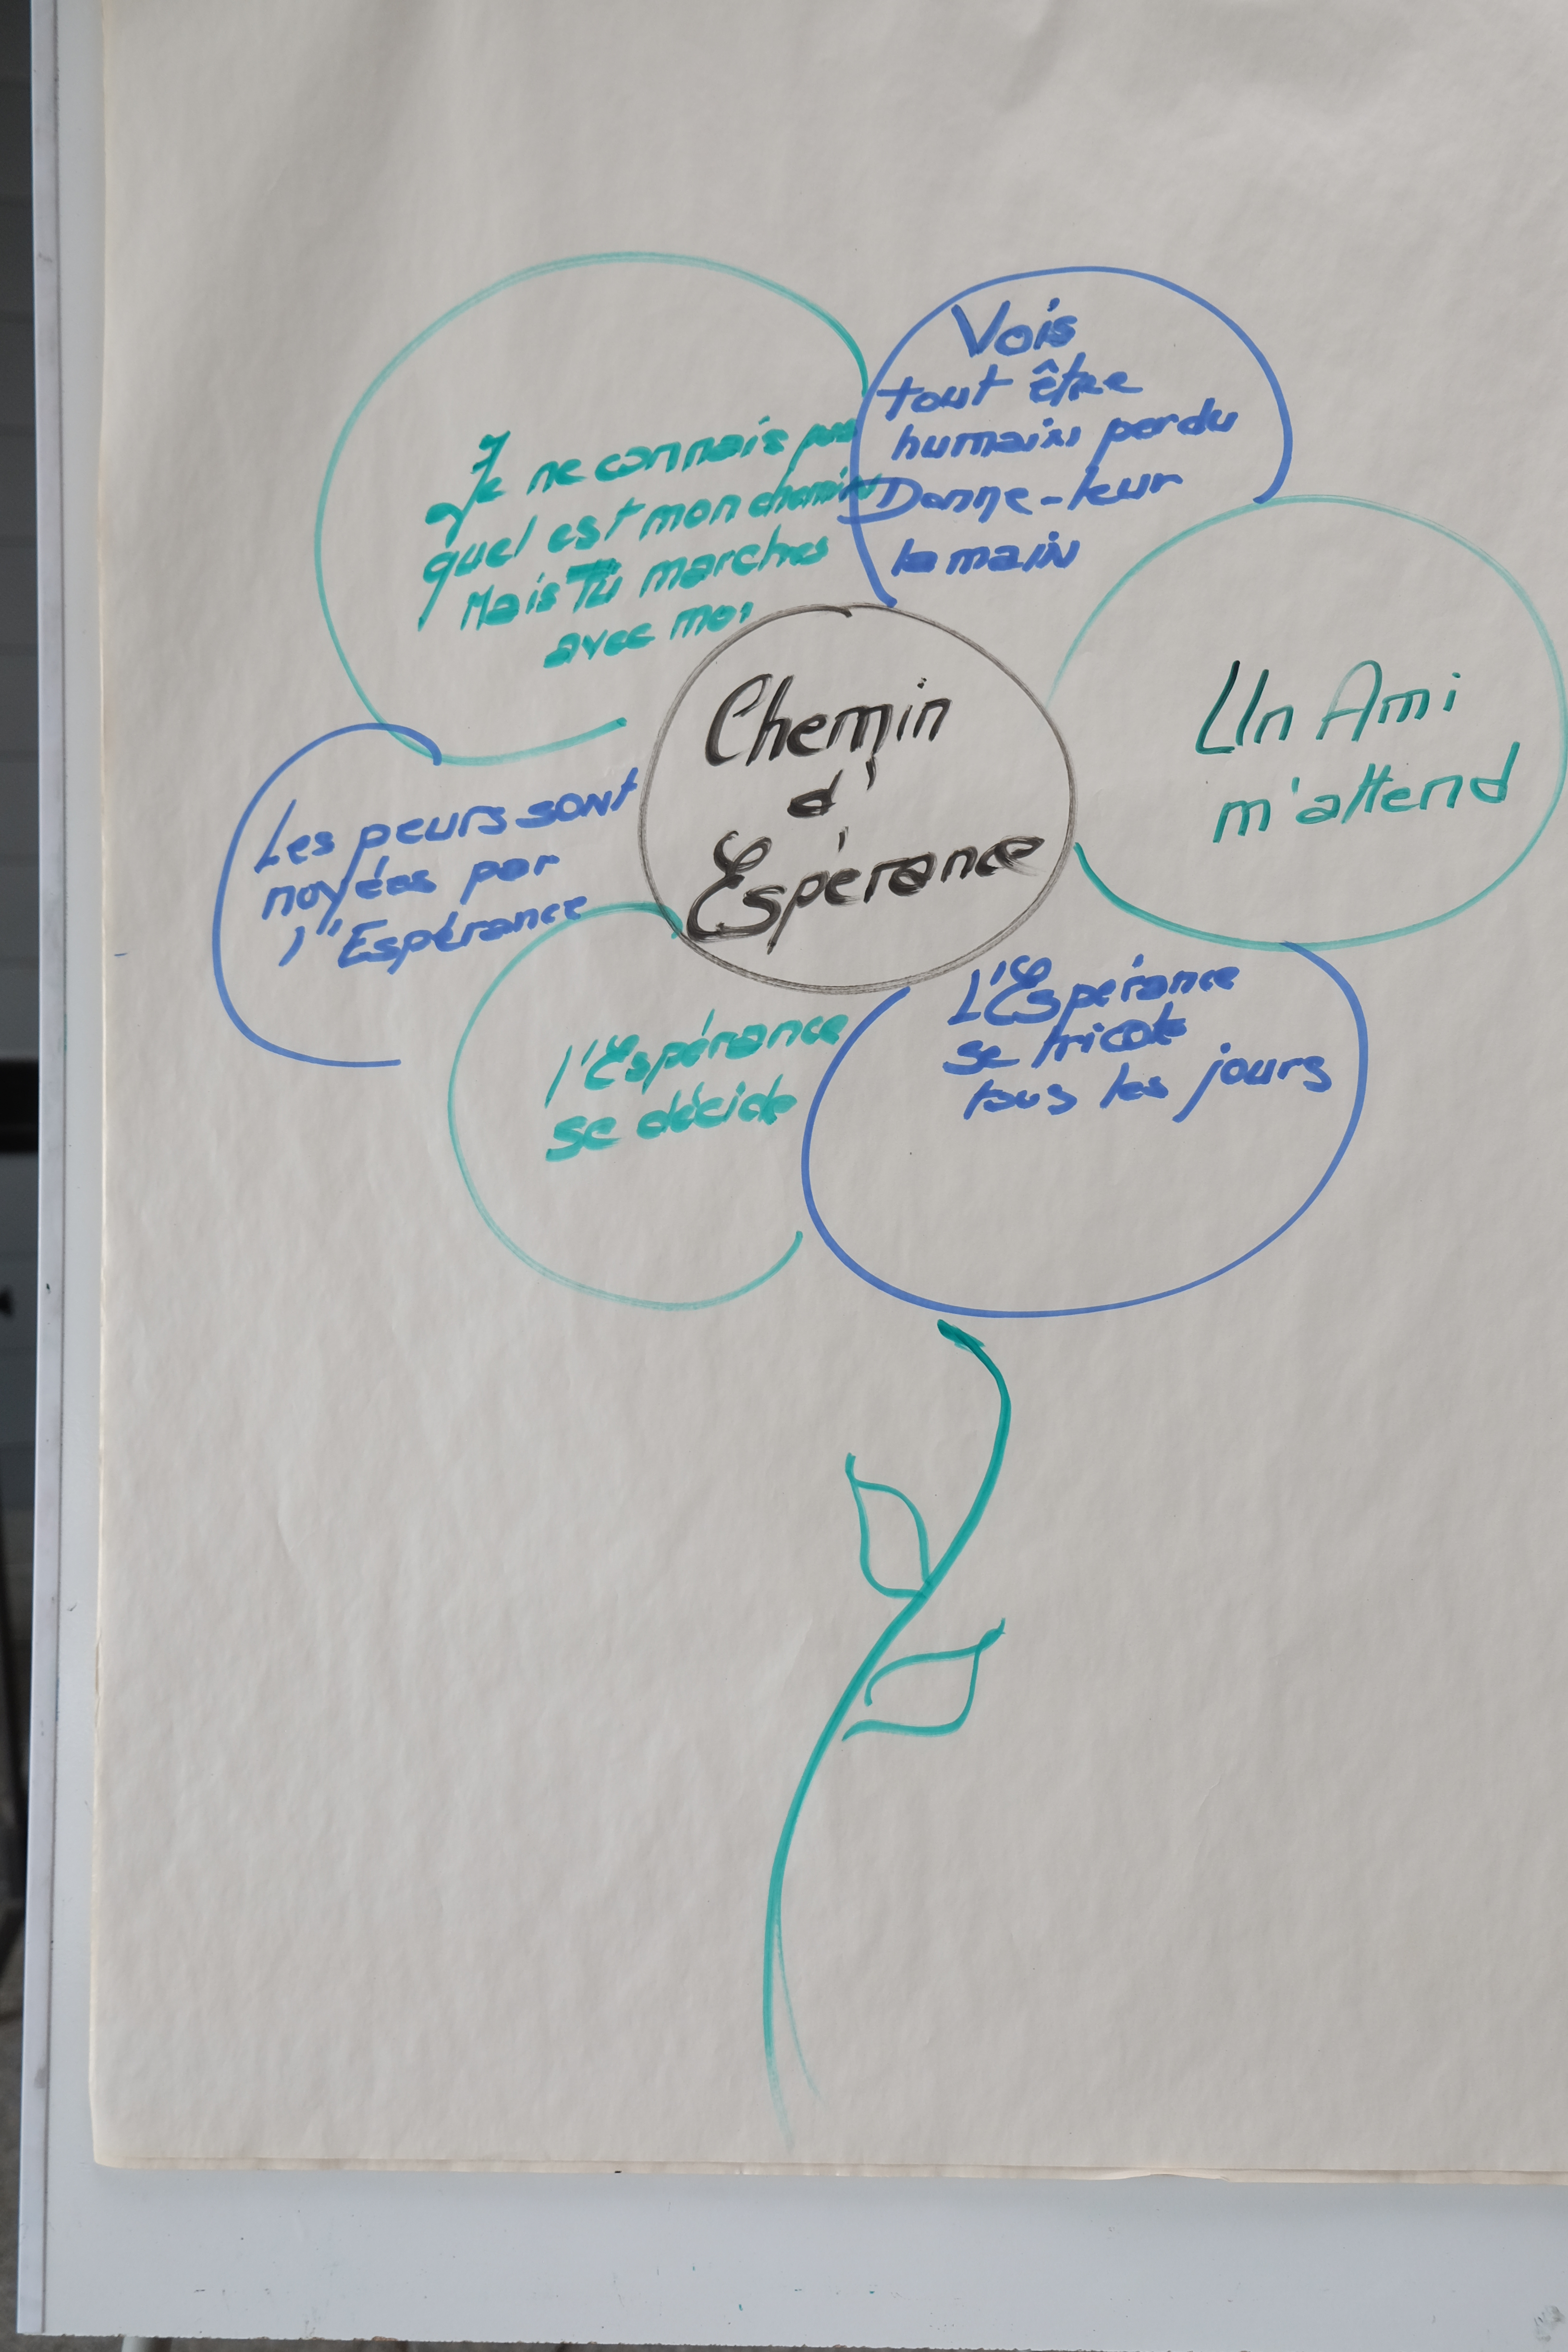 Je ne connais pas
quel est mon chemin
Mais Tu marches
avec moi
Vois
tout être
humain perdu
Donne-leur
la main
Un Ami
m'attend
Chemin
d'
Espérance
Les peurs sont
noyées par
l'Espérance
l'Espérance
se décide
L'Espérance
se tricote
tous les jours